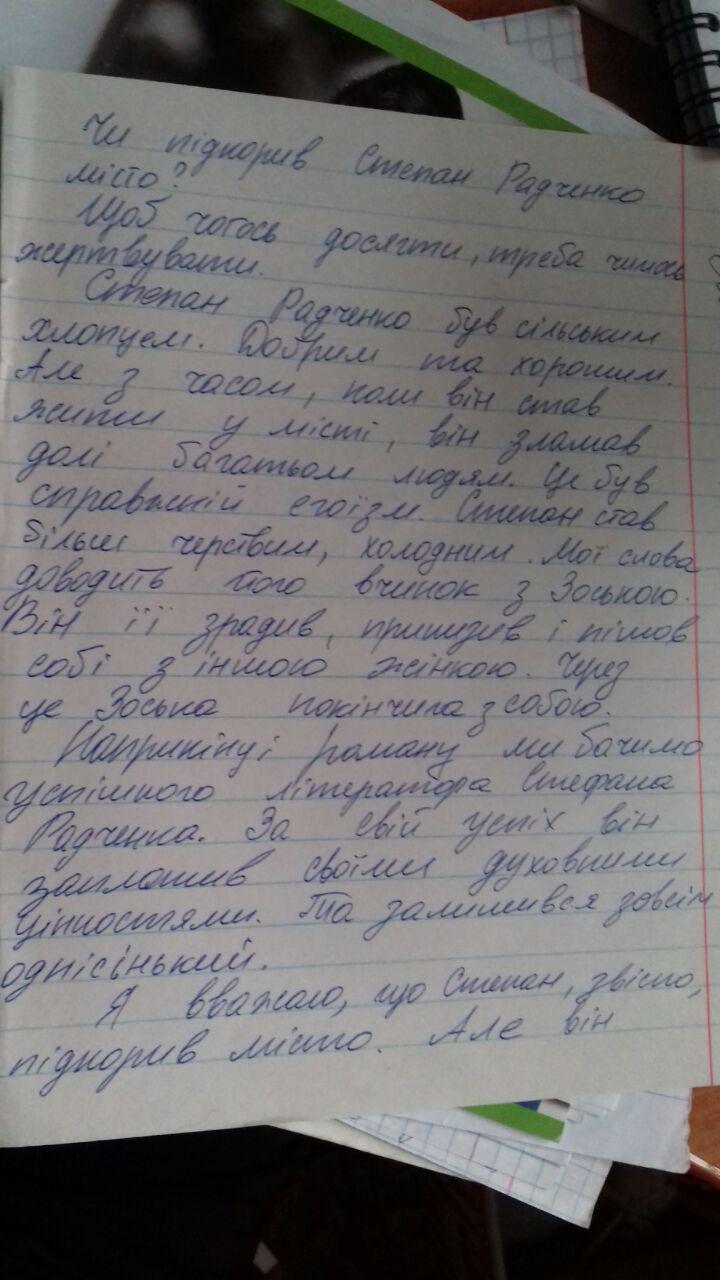 Чи підкорив Степан Радченко
місто?
Щоб чогось досягти, треба чимось
жертвувати.
Степан Радченко був сільським
хлопцем. Добрим та хорошим.
Але з часом, коли він став
жити у місті, він зламав
долі багатьом людям. Це був
справжній егоїзм. Степан став
більш черствим, холодним. Мої слова
доводить його вчинок з Зоською.
Він її зрадив, принизив і пішов
собі з іншою жінкою. Через
це Зоська покінчила з собою.
Наприкінці роману ми бачимо
успішного літератора Стефана
Радченка. За свій успіх він
заплатив своїми духовними
цінностями. Та залишився зовсім
однісінький.
Я вважаю, що Степан, звісно,
підкорив місто. Але він